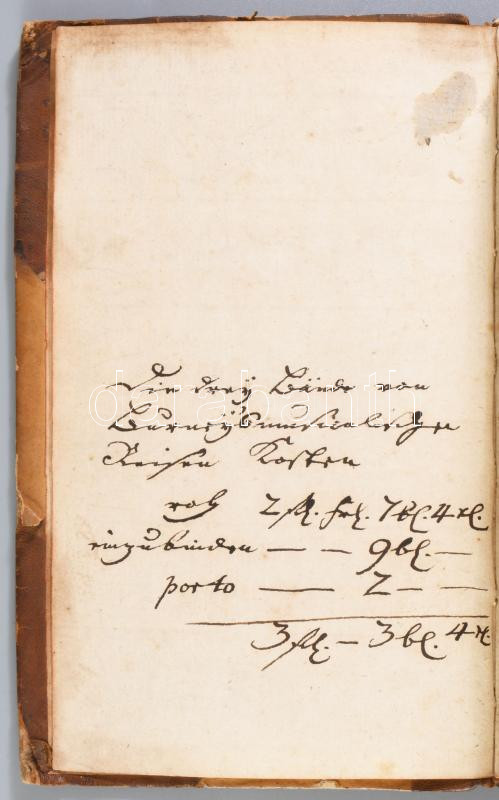 Die drey Bände von
Burney's musicalischen
Reisen Kosten
roh 2 fl. 7 bl. 4
einzubinden — — 9 bl. —
porto — 2 — —
3 fl. — 3 bl. 4
darabanth